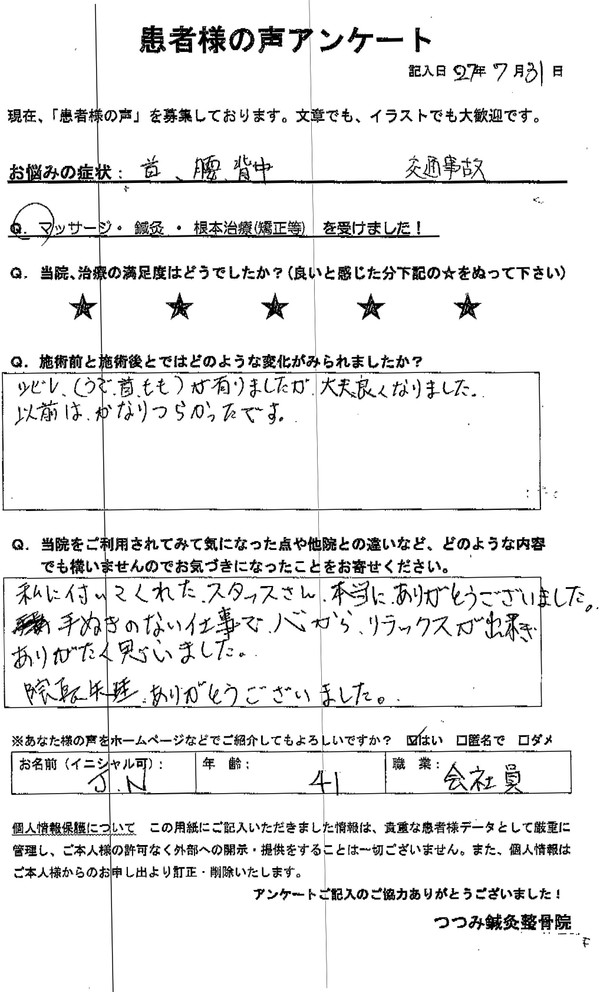 患者様の声アンケート
記入日 27年 7月31日
現在、「患者様の声」を募集しております。文章でも、イラストでも大歓迎です。
お悩みの症状: 首、腰、背中 交通事故
Q. マッサージ・ 鍼灸 ・ 根本治療(矯正等) を受けました!
Q. 当院、治療の満足度はどうでしたか?(良いと感じた分下記の☆をぬって下さい)
★ ★ ★ ★ ★
Q. 施術前と施術後とではどのような変化がみられましたか?
シビレ、(うで、首、もも)が有りましたが、大夫良くなりました。
以前は、かなりつらかったです。
Q. 当院をご利用されてみて気になった点や他院との違いなど、どのような内容
でも構いませんのでお気づきになったことをお寄せください。
私に付いてくれた、スタッフさん、本当に、ありがとうございました。
手ぬきのない仕事で、心から、リラックスが出来
ありがたく思いました。
ありがとうございました。
※あなた様の声をホームページなどでご紹介してもよろしいですか? ☑はい □匿名で □ダメ
お名前(イニシャル可): J.N 年 齢: 41 職 業: 会社員
個人情報保護について この用紙にご記入いただきました情報は、貴重な患者様データとして厳重に
管理し、ご本人様の許可なく外部への開示・提供をすることは一切ございません。また、個人情報は
ご本人様からのお申し出より訂正・削除いたします。
アンケートご記入のご協力ありがとうございました!
つつみ鍼灸整骨院